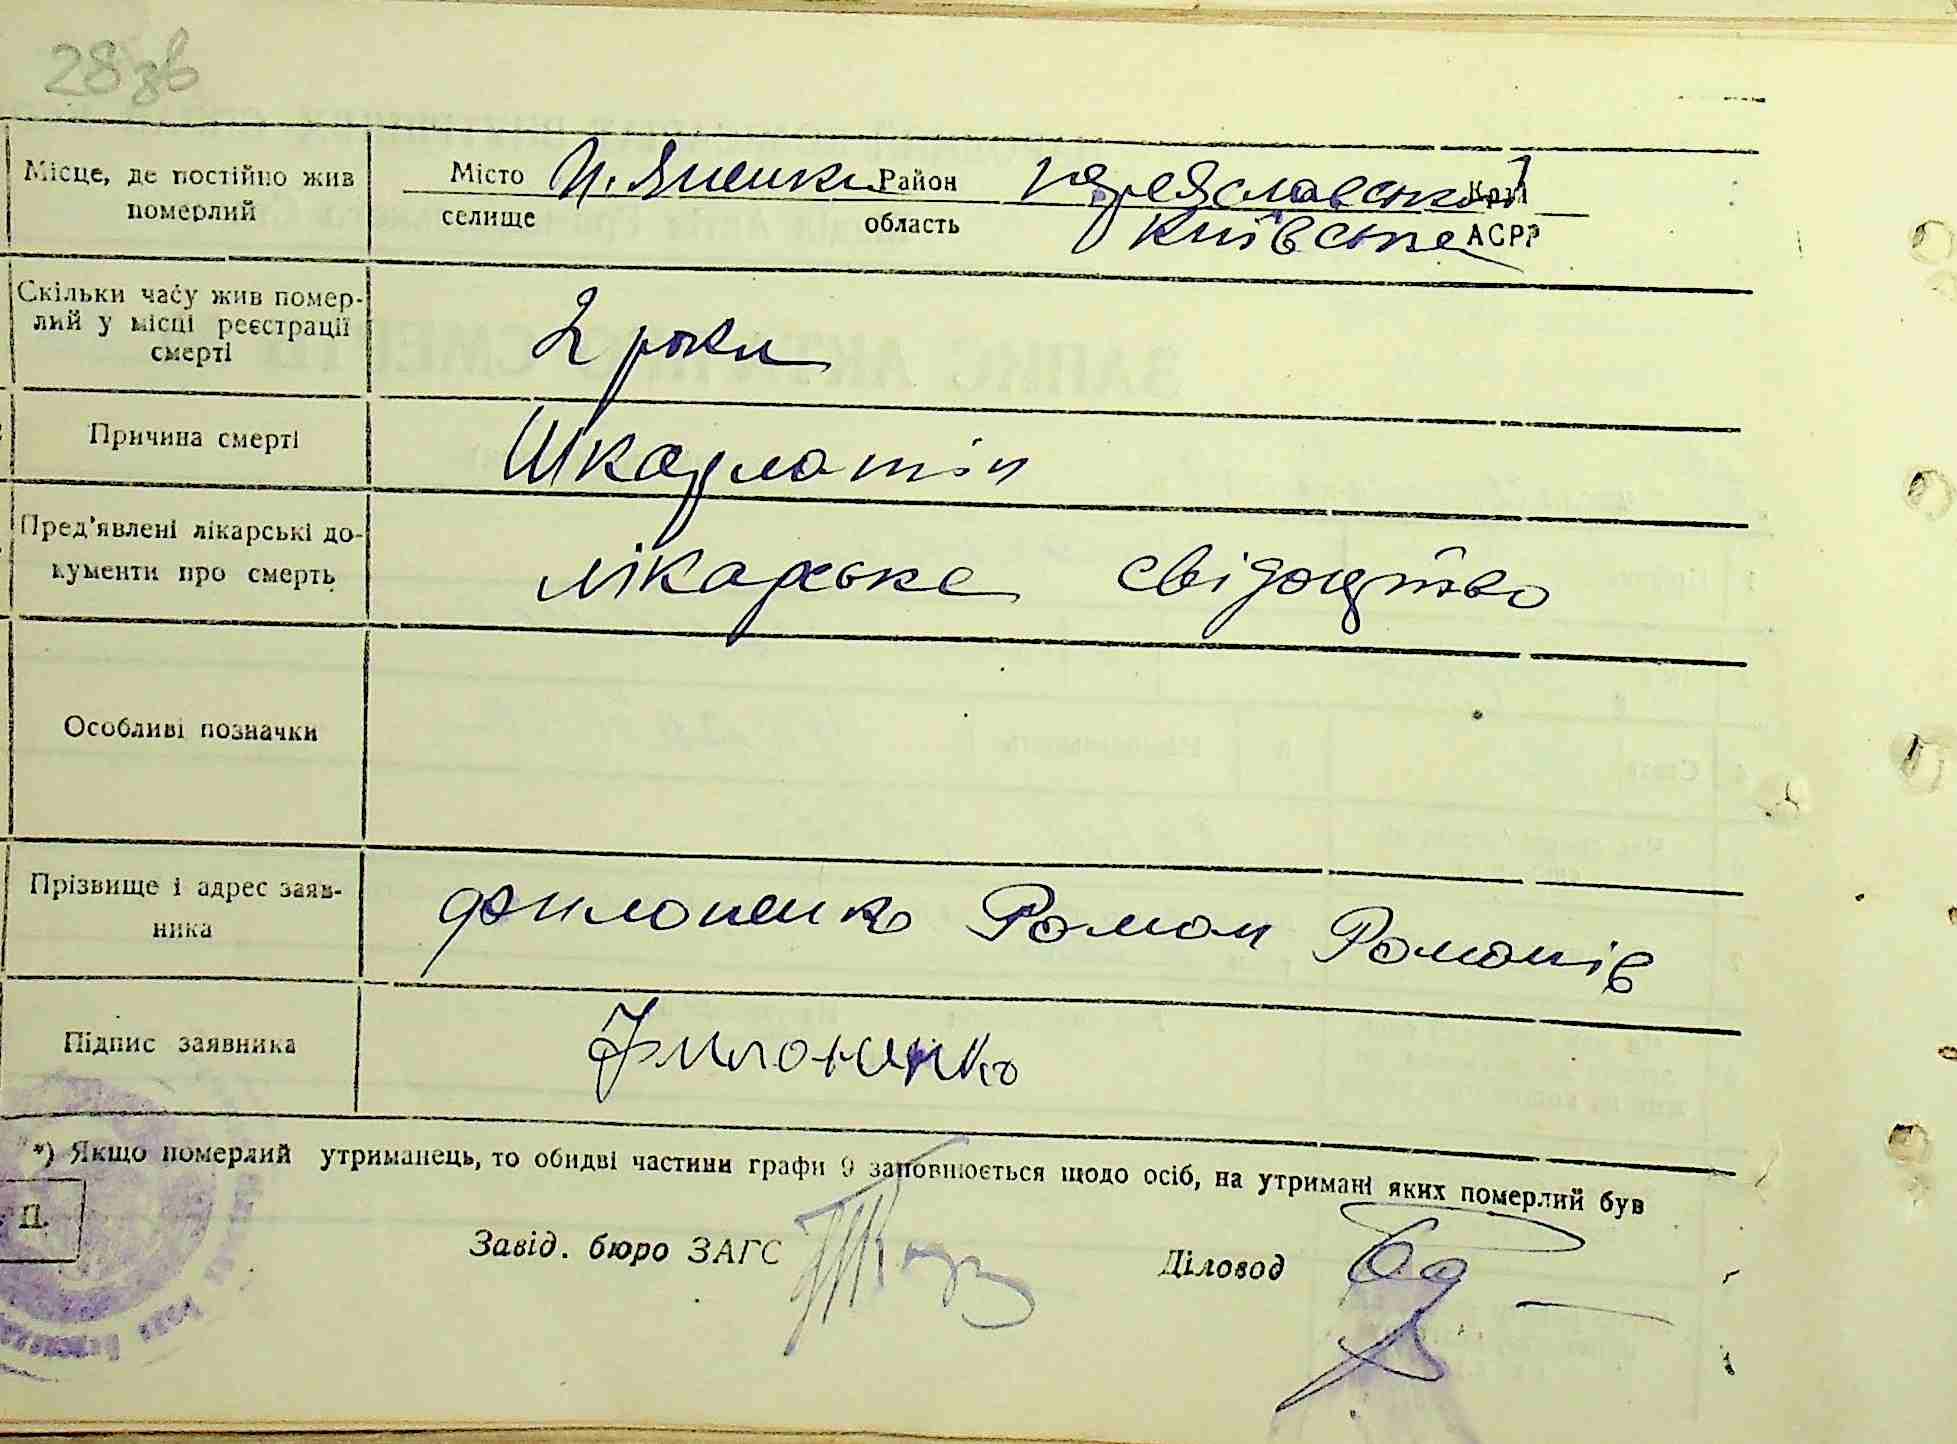 28 зв
Місце, де постійно жив
померлий
Місто Район Переяславський Край
селище область Київська АСРР
Скільки часу жив помер-
лий у місці реєстрації
смерті
2 роки
Причина смерті
Шкарлатін
Пред'явлені лікарські до-
кументи про смерть
лікарське свідоцтво
Особливі позначки
Прізвище і адрес заяв-
ника
Филоненко Роман Романів
Підпис заявника
Филоненко
*) Якщо померлий утриманець, то обидві частини графи 9 заповнюється щодо осіб, на утримані яких померлий був
П.
Завід. бюро ЗАГС
Діловод